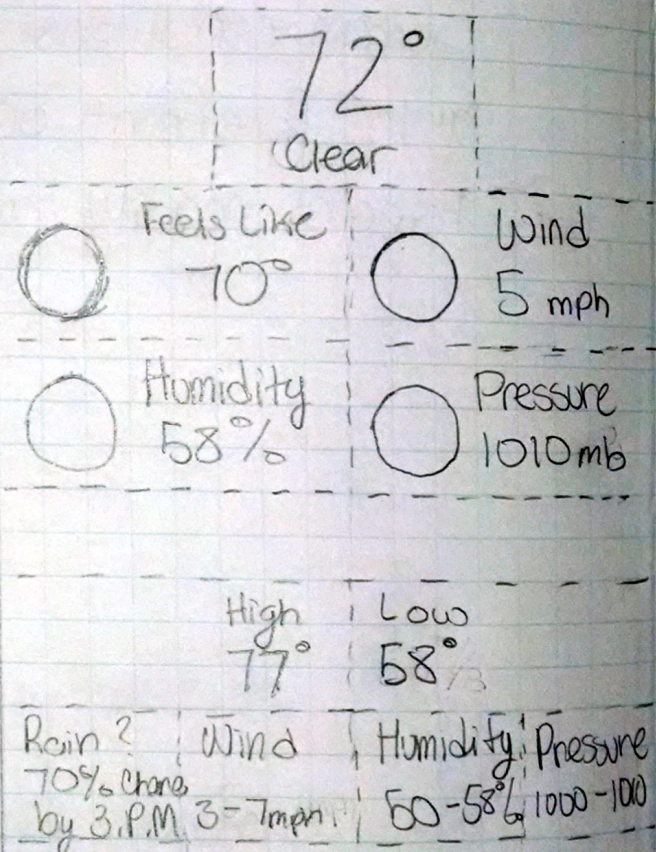 72°
Clear
Feels Like
70°
Wind
5 mph
Humidity
58%
Pressure
1010 mb
High
77°
Low
58°
Rain?
70% Chance
by 3.P.M
Wind
3-7mph.
Humidity
50-58%
Pressure
1000-1010